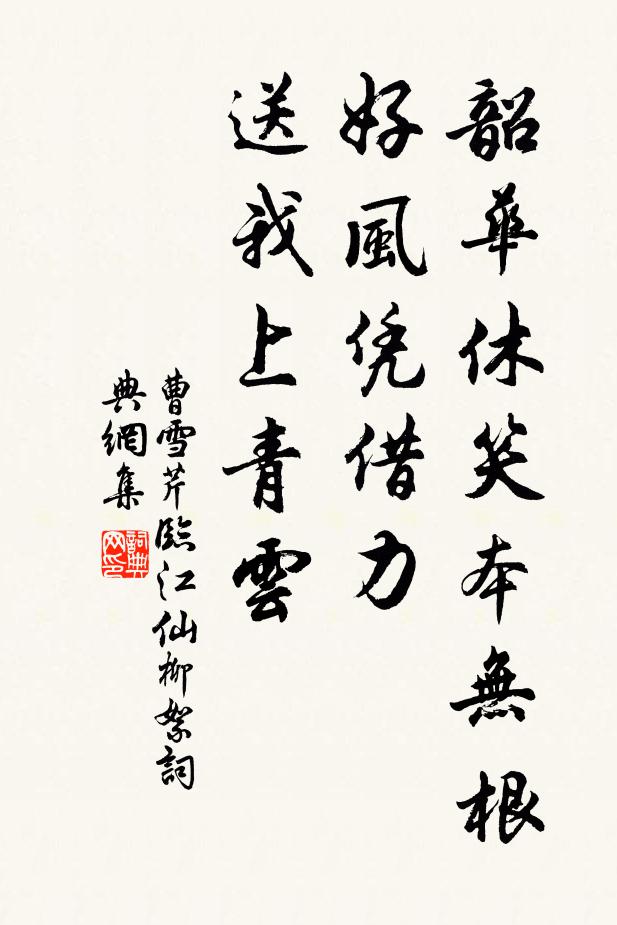 韶華休笑本無根
好風凭借力
送我上青雲
曹雪芹臨江仙柳絮詞
典網集
詞典网印